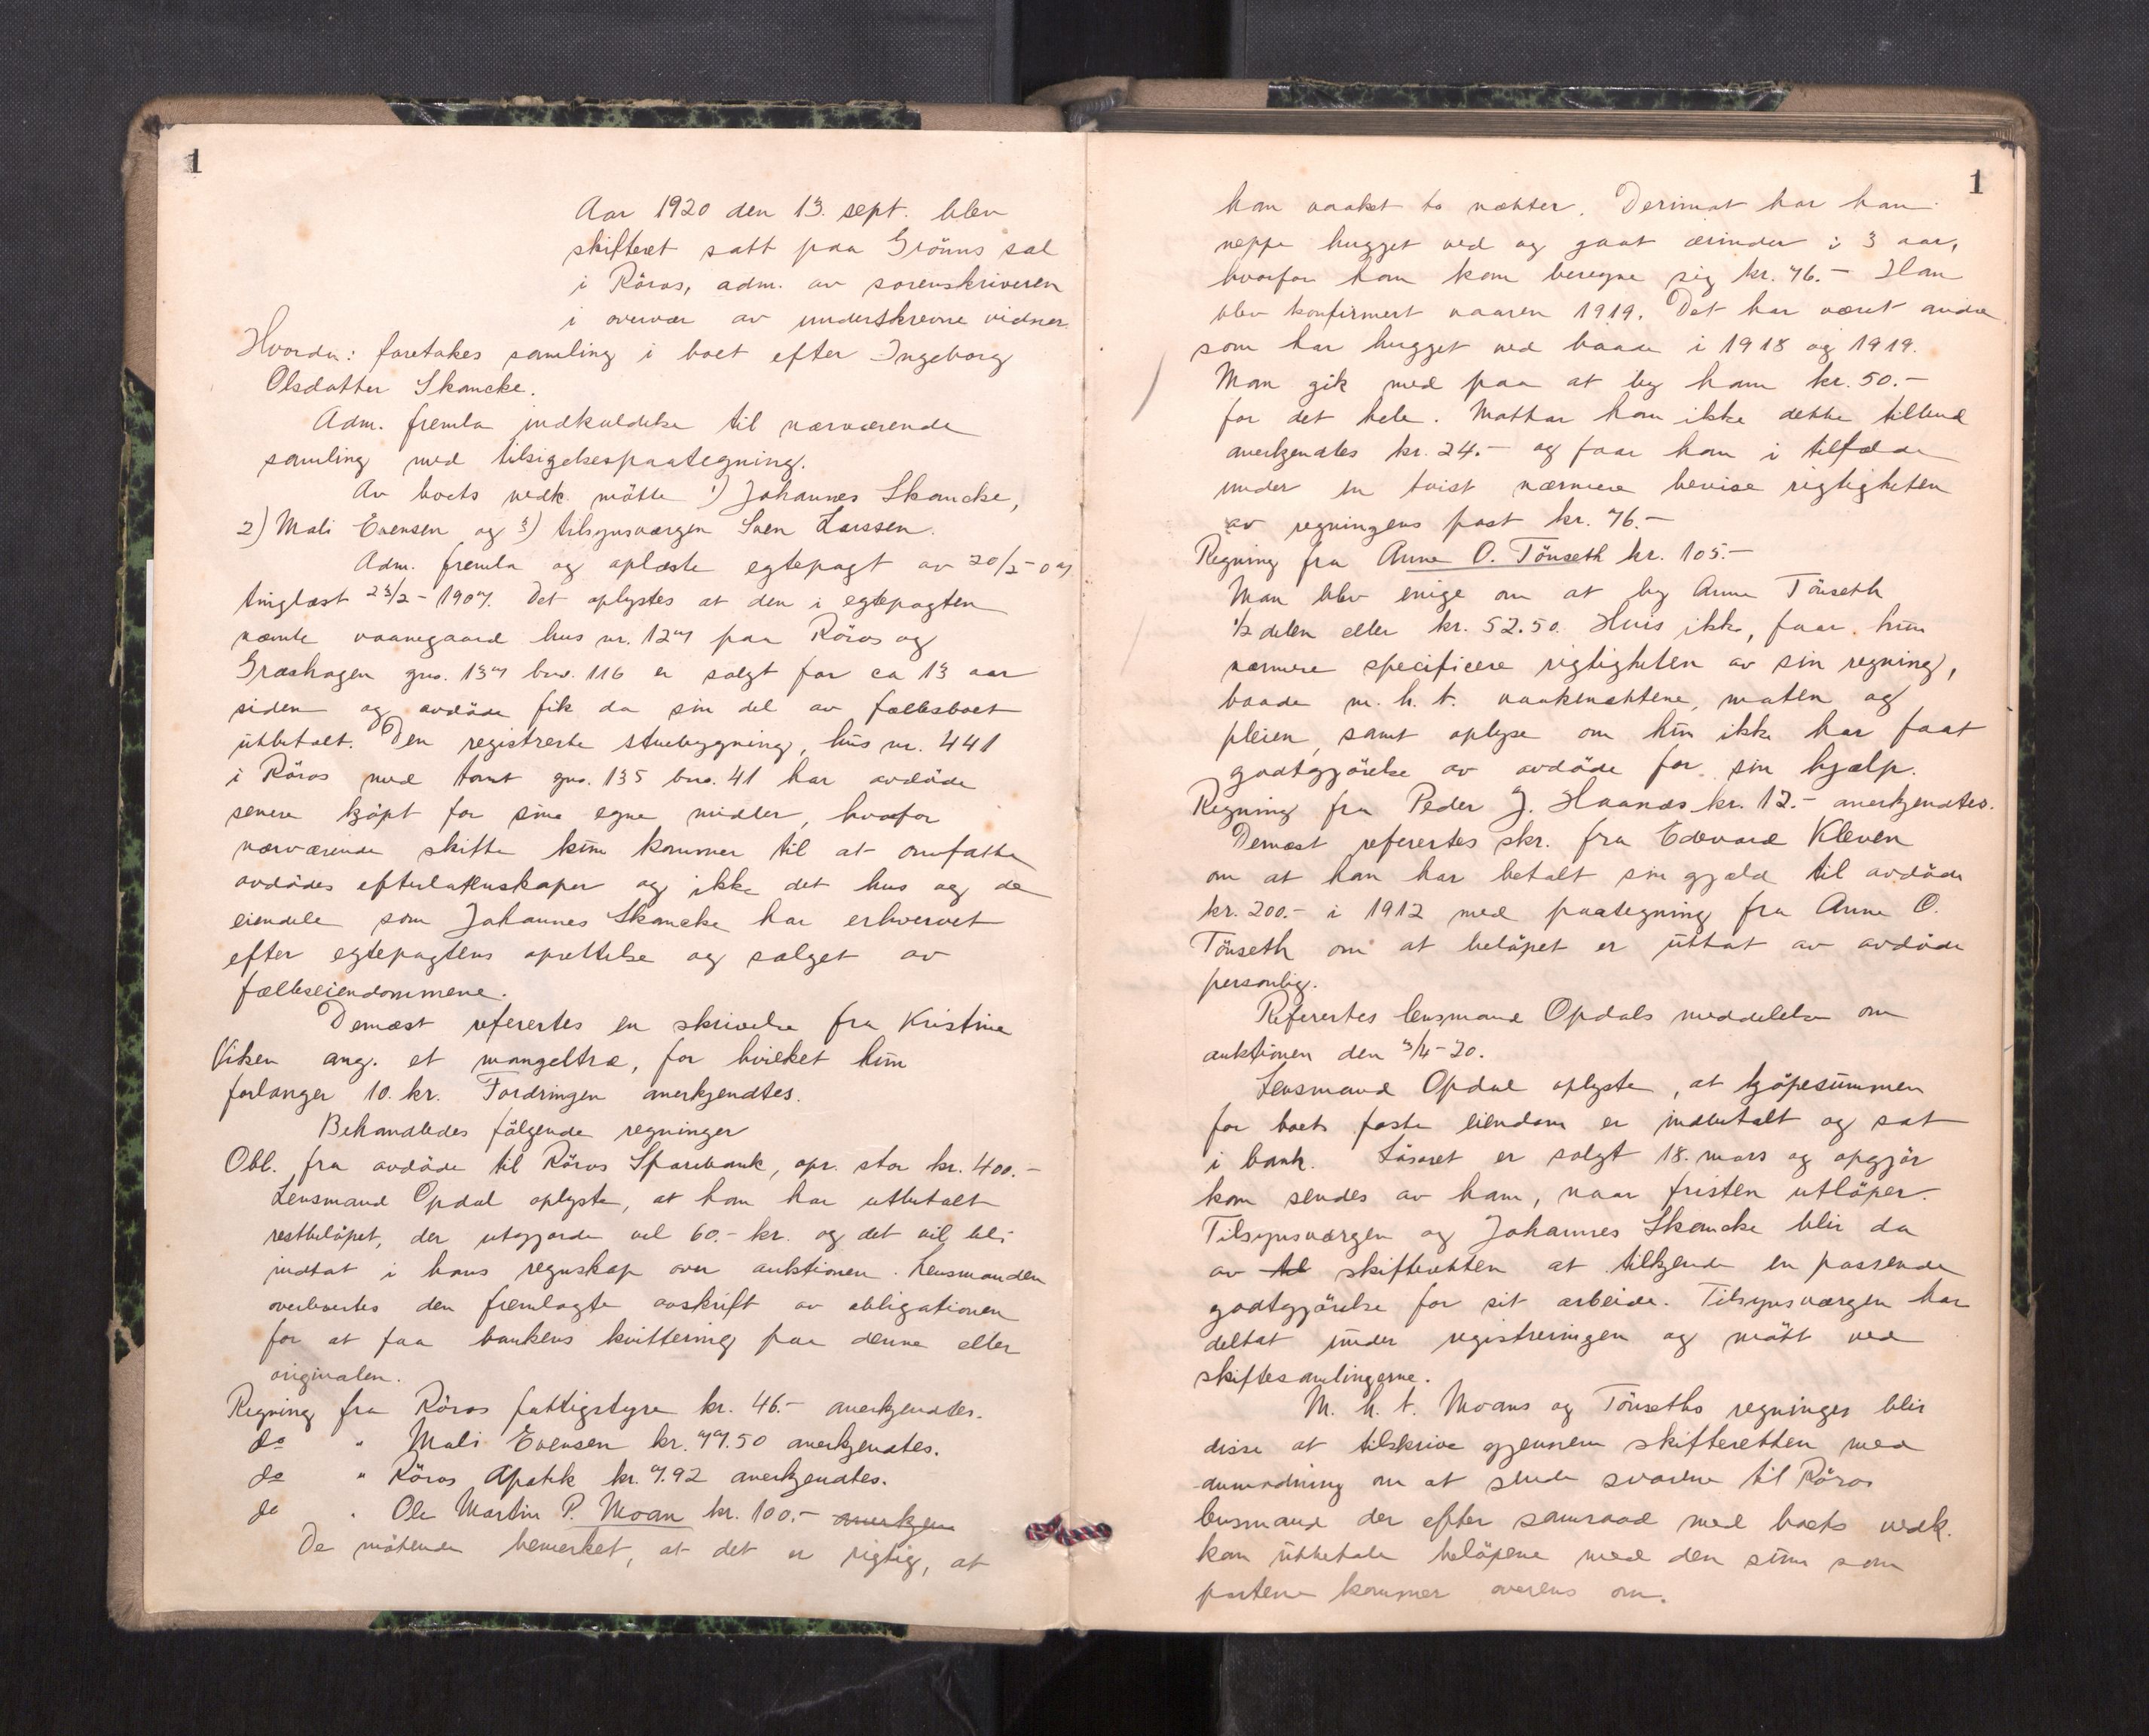 1
Aar 1920 den 13. sept. blev
skifteret satt paa Grönns sal
i Röros, adm. av sorenskriveren
i overvær av underskrevne vidner.
Hvorda: foretokes samling i boet efter Ingeborg
Olsdatter Skancke.
Adm. fremla indkaldelse til nærværende
samling med tilsigelsespaategning.
Av boets vedk. mötte 1) Johannes Skancke,
2) Mali Evensen og 3) tilsynsværgen Sven Larssen.
Adm. fremla og oplæste egtepagt av 20/2-07
tinglæst 23/2-1907. Det oplystes at den i egtepagten
nævnte vaanegaard hus nr. 127 paa Röros og
Græshagen gno. 137 bno. 116 er solgt for ca 13 aar
siden og avdöde fik da sin del av fællesboet
utbetalt. Den registrerte stuebygning, hus nr. 441
i Röros med tomt gno. 135 bno. 41 har avdöde
senere kjöpt for sine egne midler, hvorfor
nærværende skifte kun kommer til at omfatte
avdödes efterlatenskaper og ikke det hus og de
eiendele som Johannes Skancke har erhvervet
efter egtepagtens oprettelse og salget av
fælleseiendommene.
Dernæst refertes en skrivelse fra Kristine
Viken ang. et mangeltræ, for hvilket hun
forlanger 10. kr. Fordringen anerkjendtes.
Behandledes fölgende regninger
Obl. fra avdöde til Röros Sparebank, opr. stor kr. 400.-
Lensmand Opdal oplyste, at han har utbetalt
restbelöpet, der utgjorde vel 60.- kr. og det vil bli
indtat i hans regnskap over auktionen. Lensmanden
overlevertes den fremlagte avskrift av obligationen
for at faa bankens kvittering paa denne eller
originalen.
Regning fra Röros fattigstyre kr. 46.- anerkjendtes.
do " Mali Evensen kr. 77.50 anerkjendtes.
do " Röros Apotek kr. 7.92 anerkjendtes.
do " Ole Martin P. Moan kr. 100.- anerkjen
De mötende bemerket, at det er rigtig, at
1
han vaaket to nætter. Derimot har han
neppe hugget ved og gaat ærinder i 3 aar,
hvorfor han kan beregne sig kr. 76.- Han
blev konfirmert vaaren 1919. Det har været andre
som har hugget ved baade i 1918 og 1919.
Man gik med paa at by ham kr. 50.-
for det hele. Mottar han ikke dette tilbud
anerkjendtes kr. 24.- og faar han i tilfælde
under en tvist nærmere bevise rigtigheten
av regningens post kr. 76.-
Regning fra Anne O. Tönseth kr. 105.-
Man blev enige om at by Anne Tönseth
1/2 delen eller kr. 52.50. Hvis ikke, faar hun
nærmere specificere rigtigheten av sin regning,
baade m. h. t. vaakenættene, maten og
pleien, samt oplyse om hun ikke har faat
godtgjörelse av avdöde for sin hjælp.
Regning fra Peder J. Haanæs kr. 12.- anerkjendtes.
Dernæst refertes skr. fra Edevard Kleven
om at han har betalt sin gjæld til avdöde
kr. 200.- i 1912 med paategning fra Anne O.
Tönseth om at belöpet er uttat av avdöde
personlig.
Refertes lensmand Opdals meddelelse om
auktionen den 3/4-20.
Lensmand Opdal oplyste, at kjöpesummen
for boets faste eiendom er indbetalt og sat
i bank. Lösöret er solgt 18. mars og opgjör
kan sendes av ham, naar fristen utlöper.
Tilsynsværgen og Johannes Skancke blir da
av til skifteretten at tilkjende en passende
godtgjörelse for sit arbeide. Tilsynsværgen har
deltat under registreringen og mött ved
skiftesamlingerne.
M. h. t. Moans og Tönseths regninger blir
disse at tilskrive gjennem skifteretten med
anmodning om at sende svarene til Röros
lensmand der efter samraad med boets vedk.
kan utbetale belöpene med den sum som
partene kommer overens om.